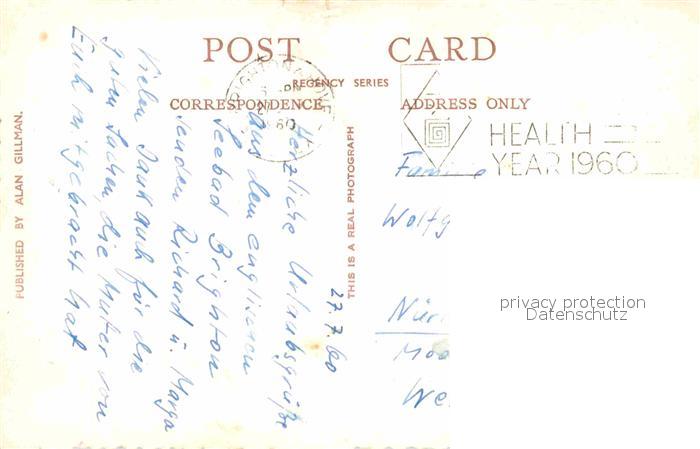 POST CARD
REGENCY SERIES
CORRESPONDENCE
ADDRESS ONLY
HEALTH
YEAR 1960
PUBLISHED BY ALAN GILLMAN.
THIS IS A REAL PHOTOGRAPH
27.7.60
Herzliche Urlaubsgrüße
aus dem englischen
Seebad Brighton
senden Richard u. Marga
Vielen Dank auch für die
guten Sachen, die Mutter von
Euch mitgebracht hat
Wolfg
Nür
We
privacy protection
Datenschutz